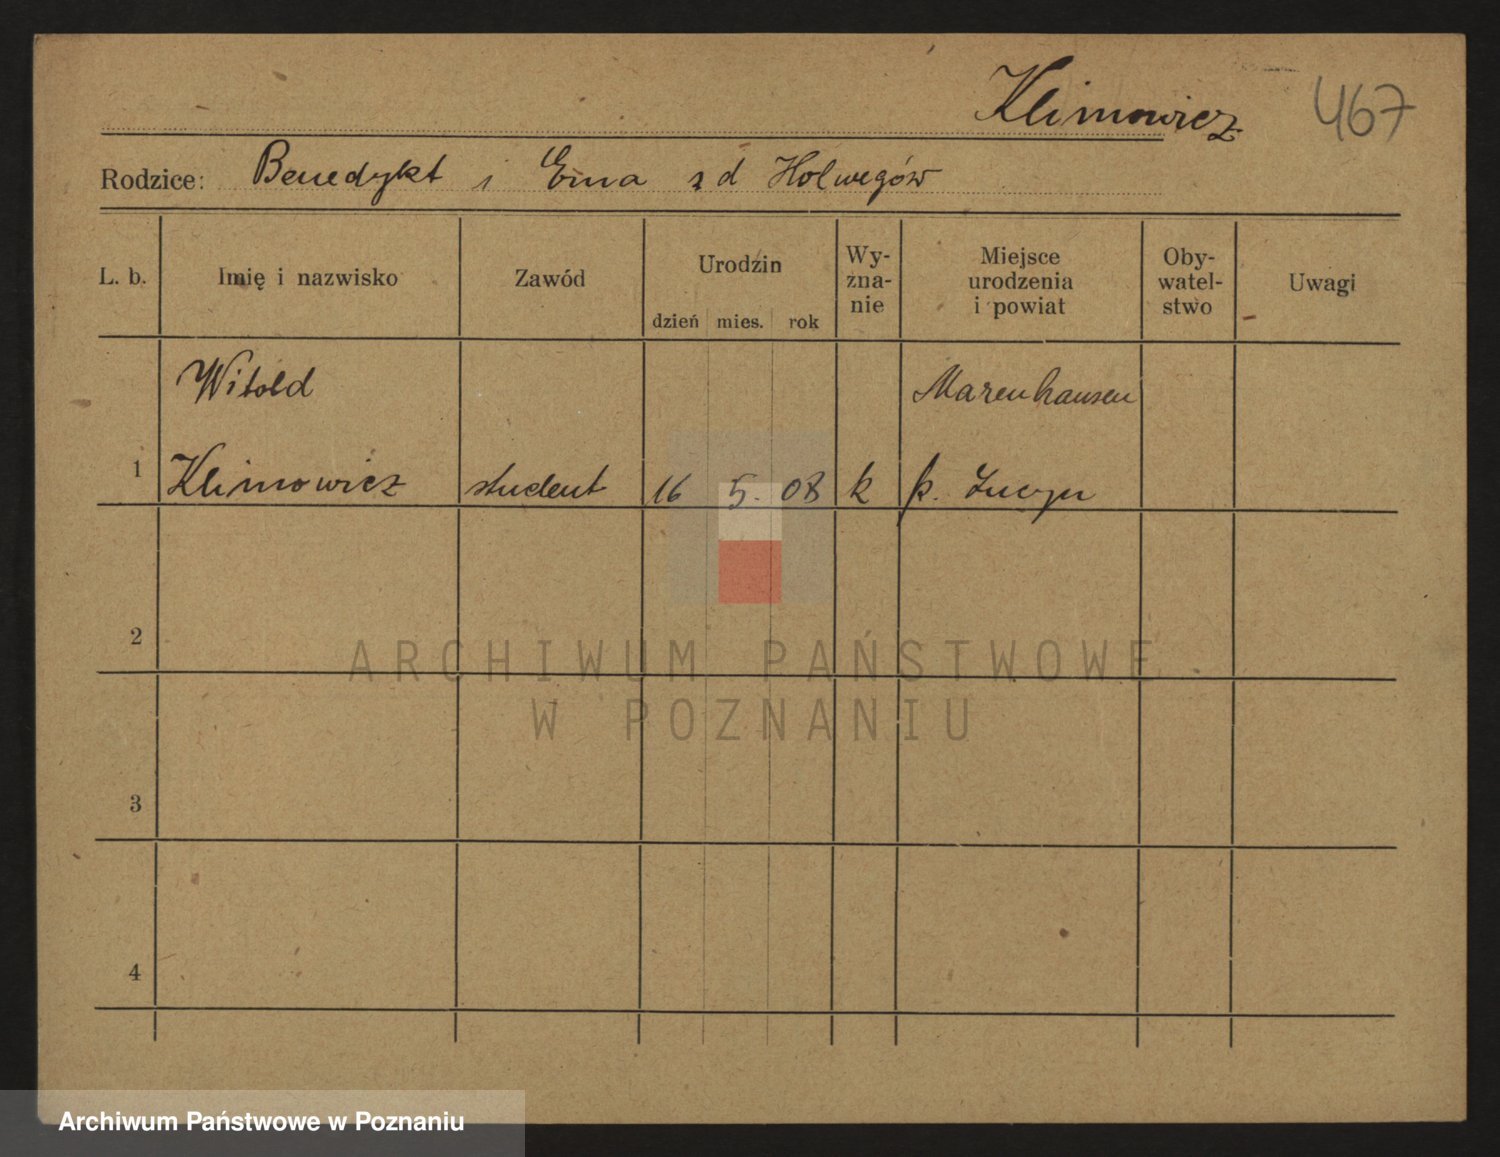 Klimowicz 467
Rodzice: Benedykt i Ema z d Holwegów
L. b. Imię i nazwisko Zawód Urodzin Wy-zna-nie Miejsce urodzenia i powiat Oby-watel-stwo Uwagi
dzień mies. rok
Witold Marenhausen
1 Klimowicz student 16 5. 08 k p.
2
ARCHIWUM PAŃSTWOWE
W POZNANIU
3
4
Archiwum Państwowe w Poznaniu